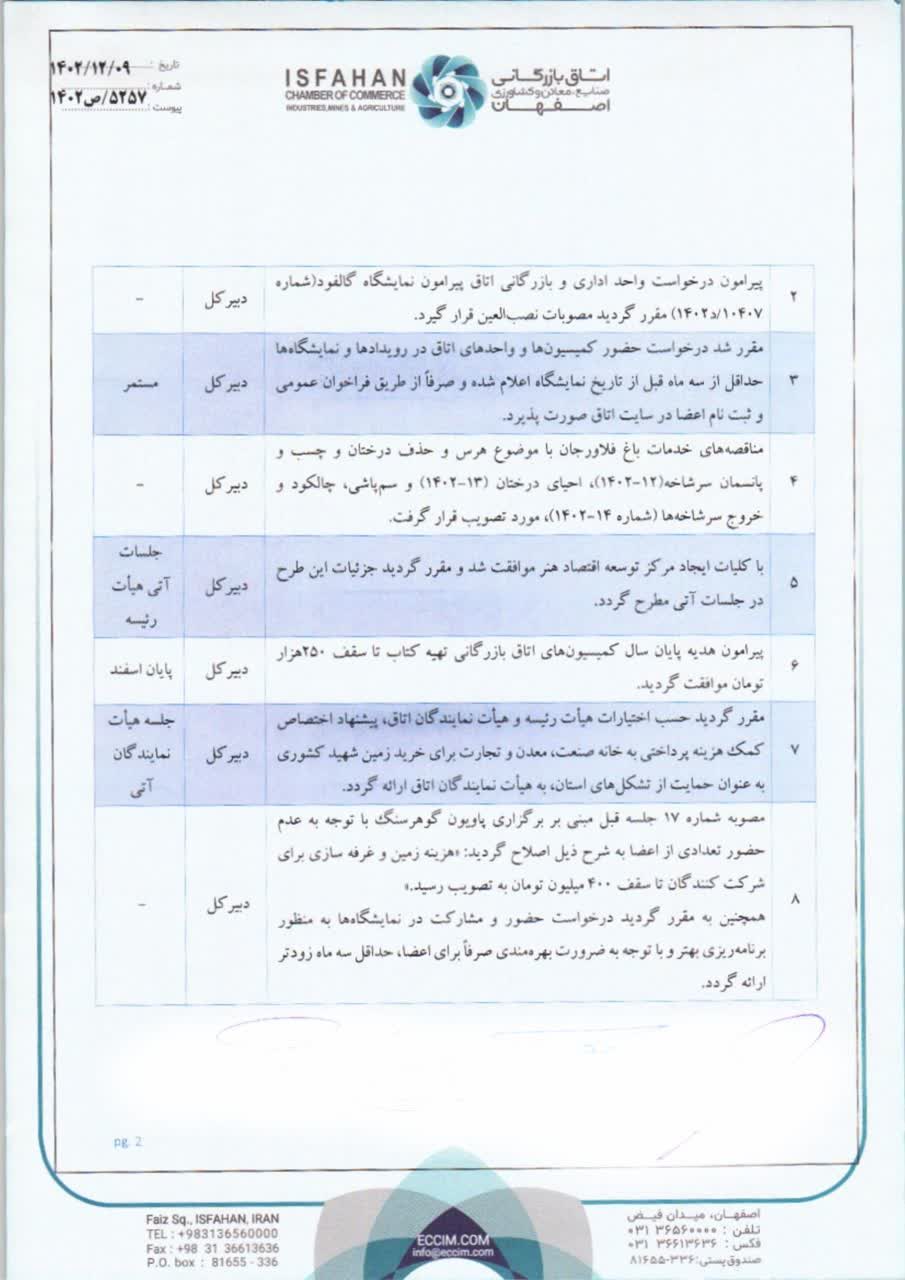 تاریخ : ۱۴۰۲/۱۲/۰۹
شماره : ۵۲۵۷/ص۱۴۰۲
پیوست :
ISFAHAN
CHAMBER OF COMMERCE
INDUSTRIES, MINES & AGRICULTURE
اتاق بازرگانی
صنایع، معادن و کشاورزی
اصفهان
۲
پیرامون درخواست واحد اداری و بازرگانی اتاق پیرامون نمایشگاه گالفود(شماره
۱۰۴۰۷/د۱۴۰۲) مقرر گردید مصوبات نصب‌العین قرار گیرد.
دبیر کل
-
۳
مقرر شد درخواست حضور کمیسیون‌ها و واحدهای اتاق در رویدادها و نمایشگاه‌ها
حداقل از سه ماه قبل از تاریخ نمایشگاه اعلام شده و صرفاً از طریق فراخوان عمومی
و ثبت نام اعضا در سایت اتاق صورت پذیرد.
دبیر کل
مستمر
۴
مناقصه‌های خدمات باغ فلاورجان با موضوع هرس و حذف درختان و چسب و
پانسمان سرشاخه(۱۲-۱۴۰۲)، احیای درختان (۱۳-۱۴۰۲) و سم‌پاشی، چالکود و
خروج سرشاخه‌ها (شماره ۱۴-۱۴۰۲)، مورد تصویب قرار گرفت.
دبیر کل
-
۵
با کلیات ایجاد مرکز توسعه اقتصاد هنر موافقت شد و مقرر گردید جزئیات این طرح
در جلسات آتی مطرح گردد.
دبیر کل
جلسات
آتی هیأت
رئیسه
۶
پیرامون هدیه پایان سال کمیسیون‌های اتاق بازرگانی تهیه کتاب تا سقف ۲۵۰هزار
تومان موافقت گردید.
دبیر کل
پایان اسفند
۷
مقرر گردید حسب اختیارات هیأت رئیسه و هیأت نمایندگان اتاق، پیشنهاد اختصاص
کمک هزینه پرداختی به خانه صنعت، معدن و تجارت برای خرید زمین شهید کشوری
به عنوان حمایت از تشکل‌های استان، به هیأت نمایندگان اتاق ارائه گردد.
دبیر کل
جلسه هیأت
نمایندگان
آتی
۸
مصوبه شماره ۱۷ جلسه قبل مبنی بر برگزاری پاویون گوهرسنگ با توجه به عدم
حضور تعدادی از اعضا به شرح ذیل اصلاح گردید: «هزینه زمین و غرفه سازی برای
شرکت کنندگان تا سقف ۴۰۰ میلیون تومان به تصویب رسید.»
همچنین به مقرر گردید درخواست حضور و مشارکت در نمایشگاه‌ها به منظور
برنامه‌ریزی بهتر و با توجه به ضرورت بهره‌مندی صرفاً برای اعضا، حداقل سه ماه زودتر
ارائه گردد.
دبیر کل
-
pg. 2
Faiz Sq., ISFAHAN, IRAN
TEL : +983136560000
Fax : +98 31 36613636
P.O. box : 81655 - 336
ECCIM.COM
info@eccim.com
اصفهان، میدان فیض
تلفن : ۳۶۵۶۰۰۰۰ ۰۳۱
فکس : ۳۶۶۱۳۶۳۶ ۰۳۱
صندوق پستی: ۳۳۶-۸۱۶۵۵